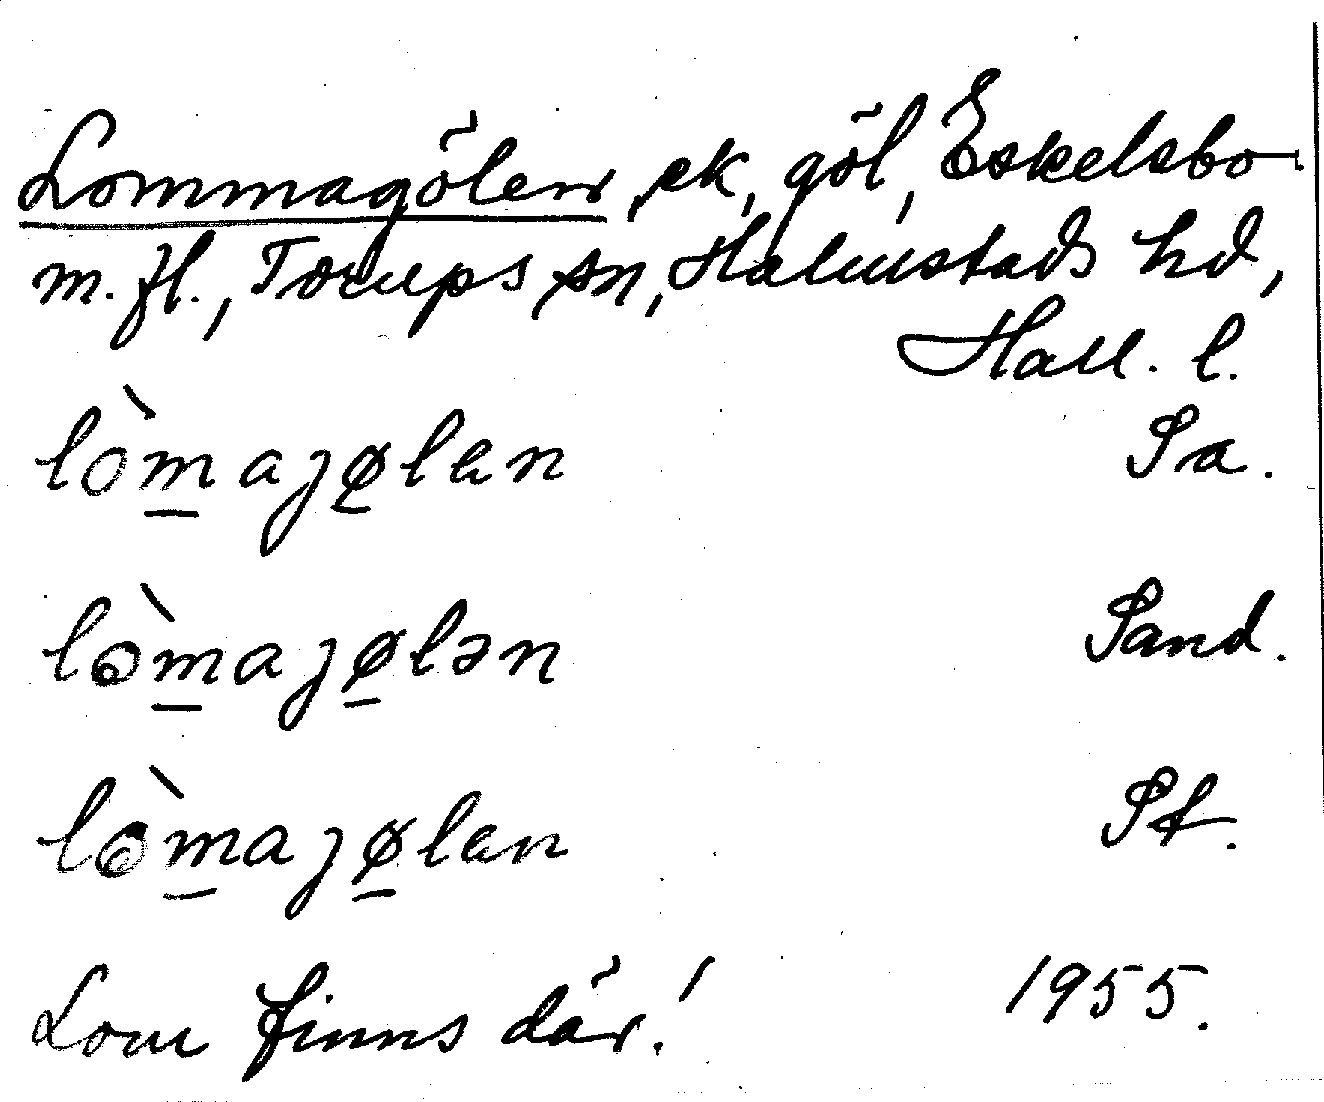 Lommagölen, ek, göl, Eskelsbo
m. fl., Torups sn, Halmstads hd,
Hall. l.
lòmajølan Sa.
lòmajølən Sand.
lòmajølan Sf.
Lom finns där! 1955.